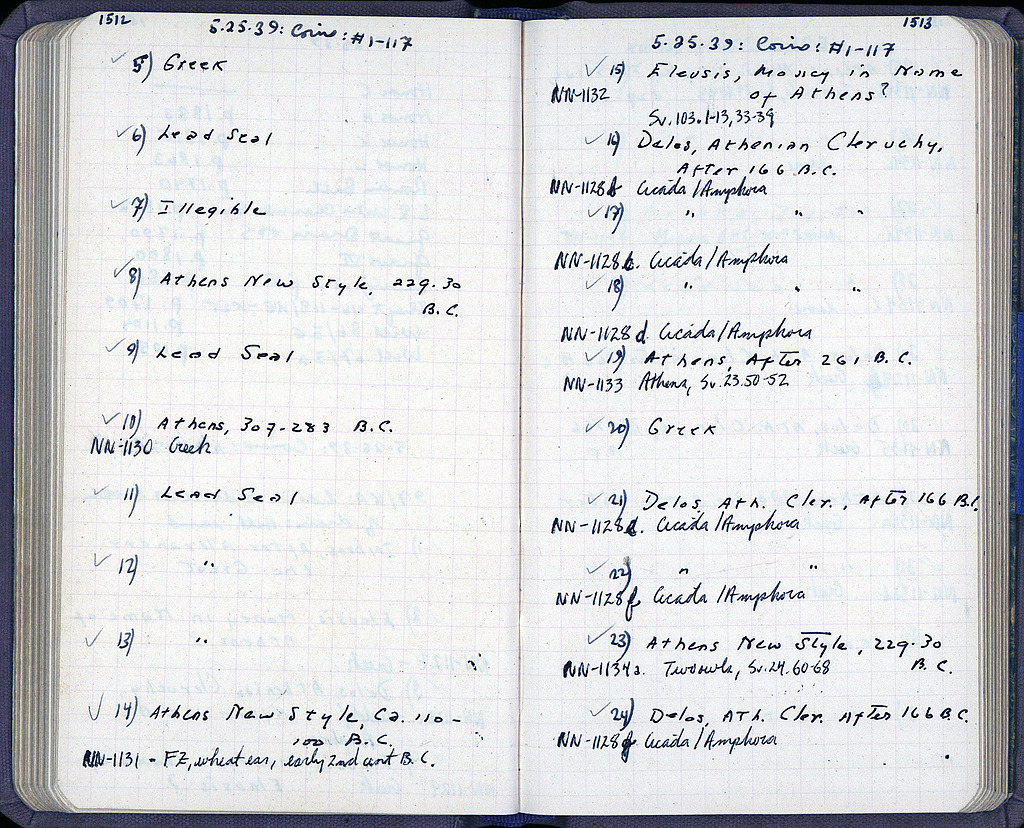 1512
5.25.39: Coins: #1-117
✓ 5) Greek
✓ 6) Lead Seal
✓ 7) Illegible
✓ 8) Athens New Style, 229.30
B.C.
✓ 9) Lead Seal
✓ 10) Athens, 307-283 B.C.
NN-1130 Greek
✓ 11) Lead Seal
✓ 12) "
✓ 13) "
✓ 14) Athens New Style, Ca. 110-
100 B.C.
NN-1131 - FZ, wheat ear, early 2nd cent B.C.
1513
5.25.39: Coins: #1-117
✓ 15) Eleusis, Money in Name
NN-1132 of Athens?
Sv. 103.1-13, 33-39
✓ 16) Delos, Athenian Cleruchy,
After 166 B.C.
NN-1128b Cicada/Amphora
✓ 17) " " "
NN-1128c. Cicada/Amphora
✓ 18) " " "
NN-1128d. Cicada/Amphora
✓ 19) Athens, After 261 B.C.
NN-1133 Athena, Sv. 23.50-52
✓ 20) Greek
✓ 21) Delos, Ath. Cler., After 166 B.C.
NN-1128e. Cicada/Amphora
✓ 22) " "
NN-1128f Cicada/Amphora
✓ 23) Athens New Style, 229.30
B.C.
NN-1134a. Two owls, Sv. 24.60-68
✓ 24) Delos, Ath. Cler. After 166 B.C.
NN-1128g Cicada/Amphora